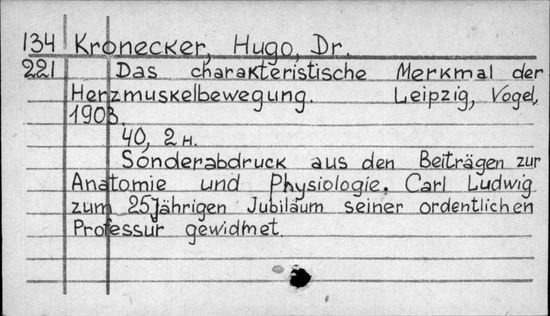 134 Kronecker, Hugo, Dr.
221 Das charakteristische Merkmal der
Herzmuskelbewegung. Leipzig, Vogel,
1903.
40, 2 H.
Sonderabdruck aus den Beiträgen zur
Anatomie und Physiologie, Carl Ludwig
zum 25jährigen Jubiläum seiner ordentlichen
Professur gewidmet.